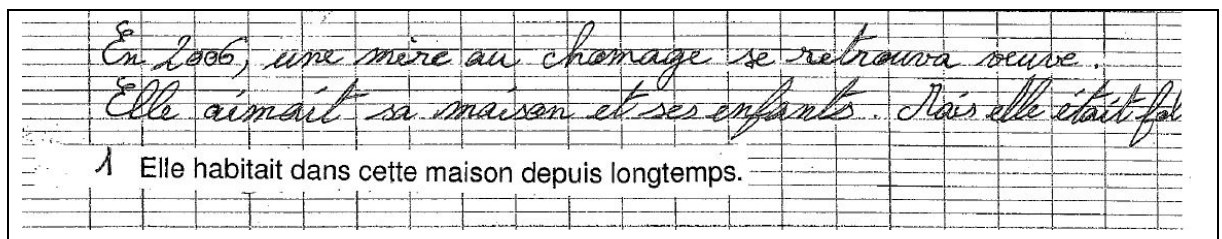 En 2006, une mère au chomage se retrouva veuve.
Elle aimait sa maison et ses enfants. Mais elle était fol
1 Elle habitait dans cette maison depuis longtemps.